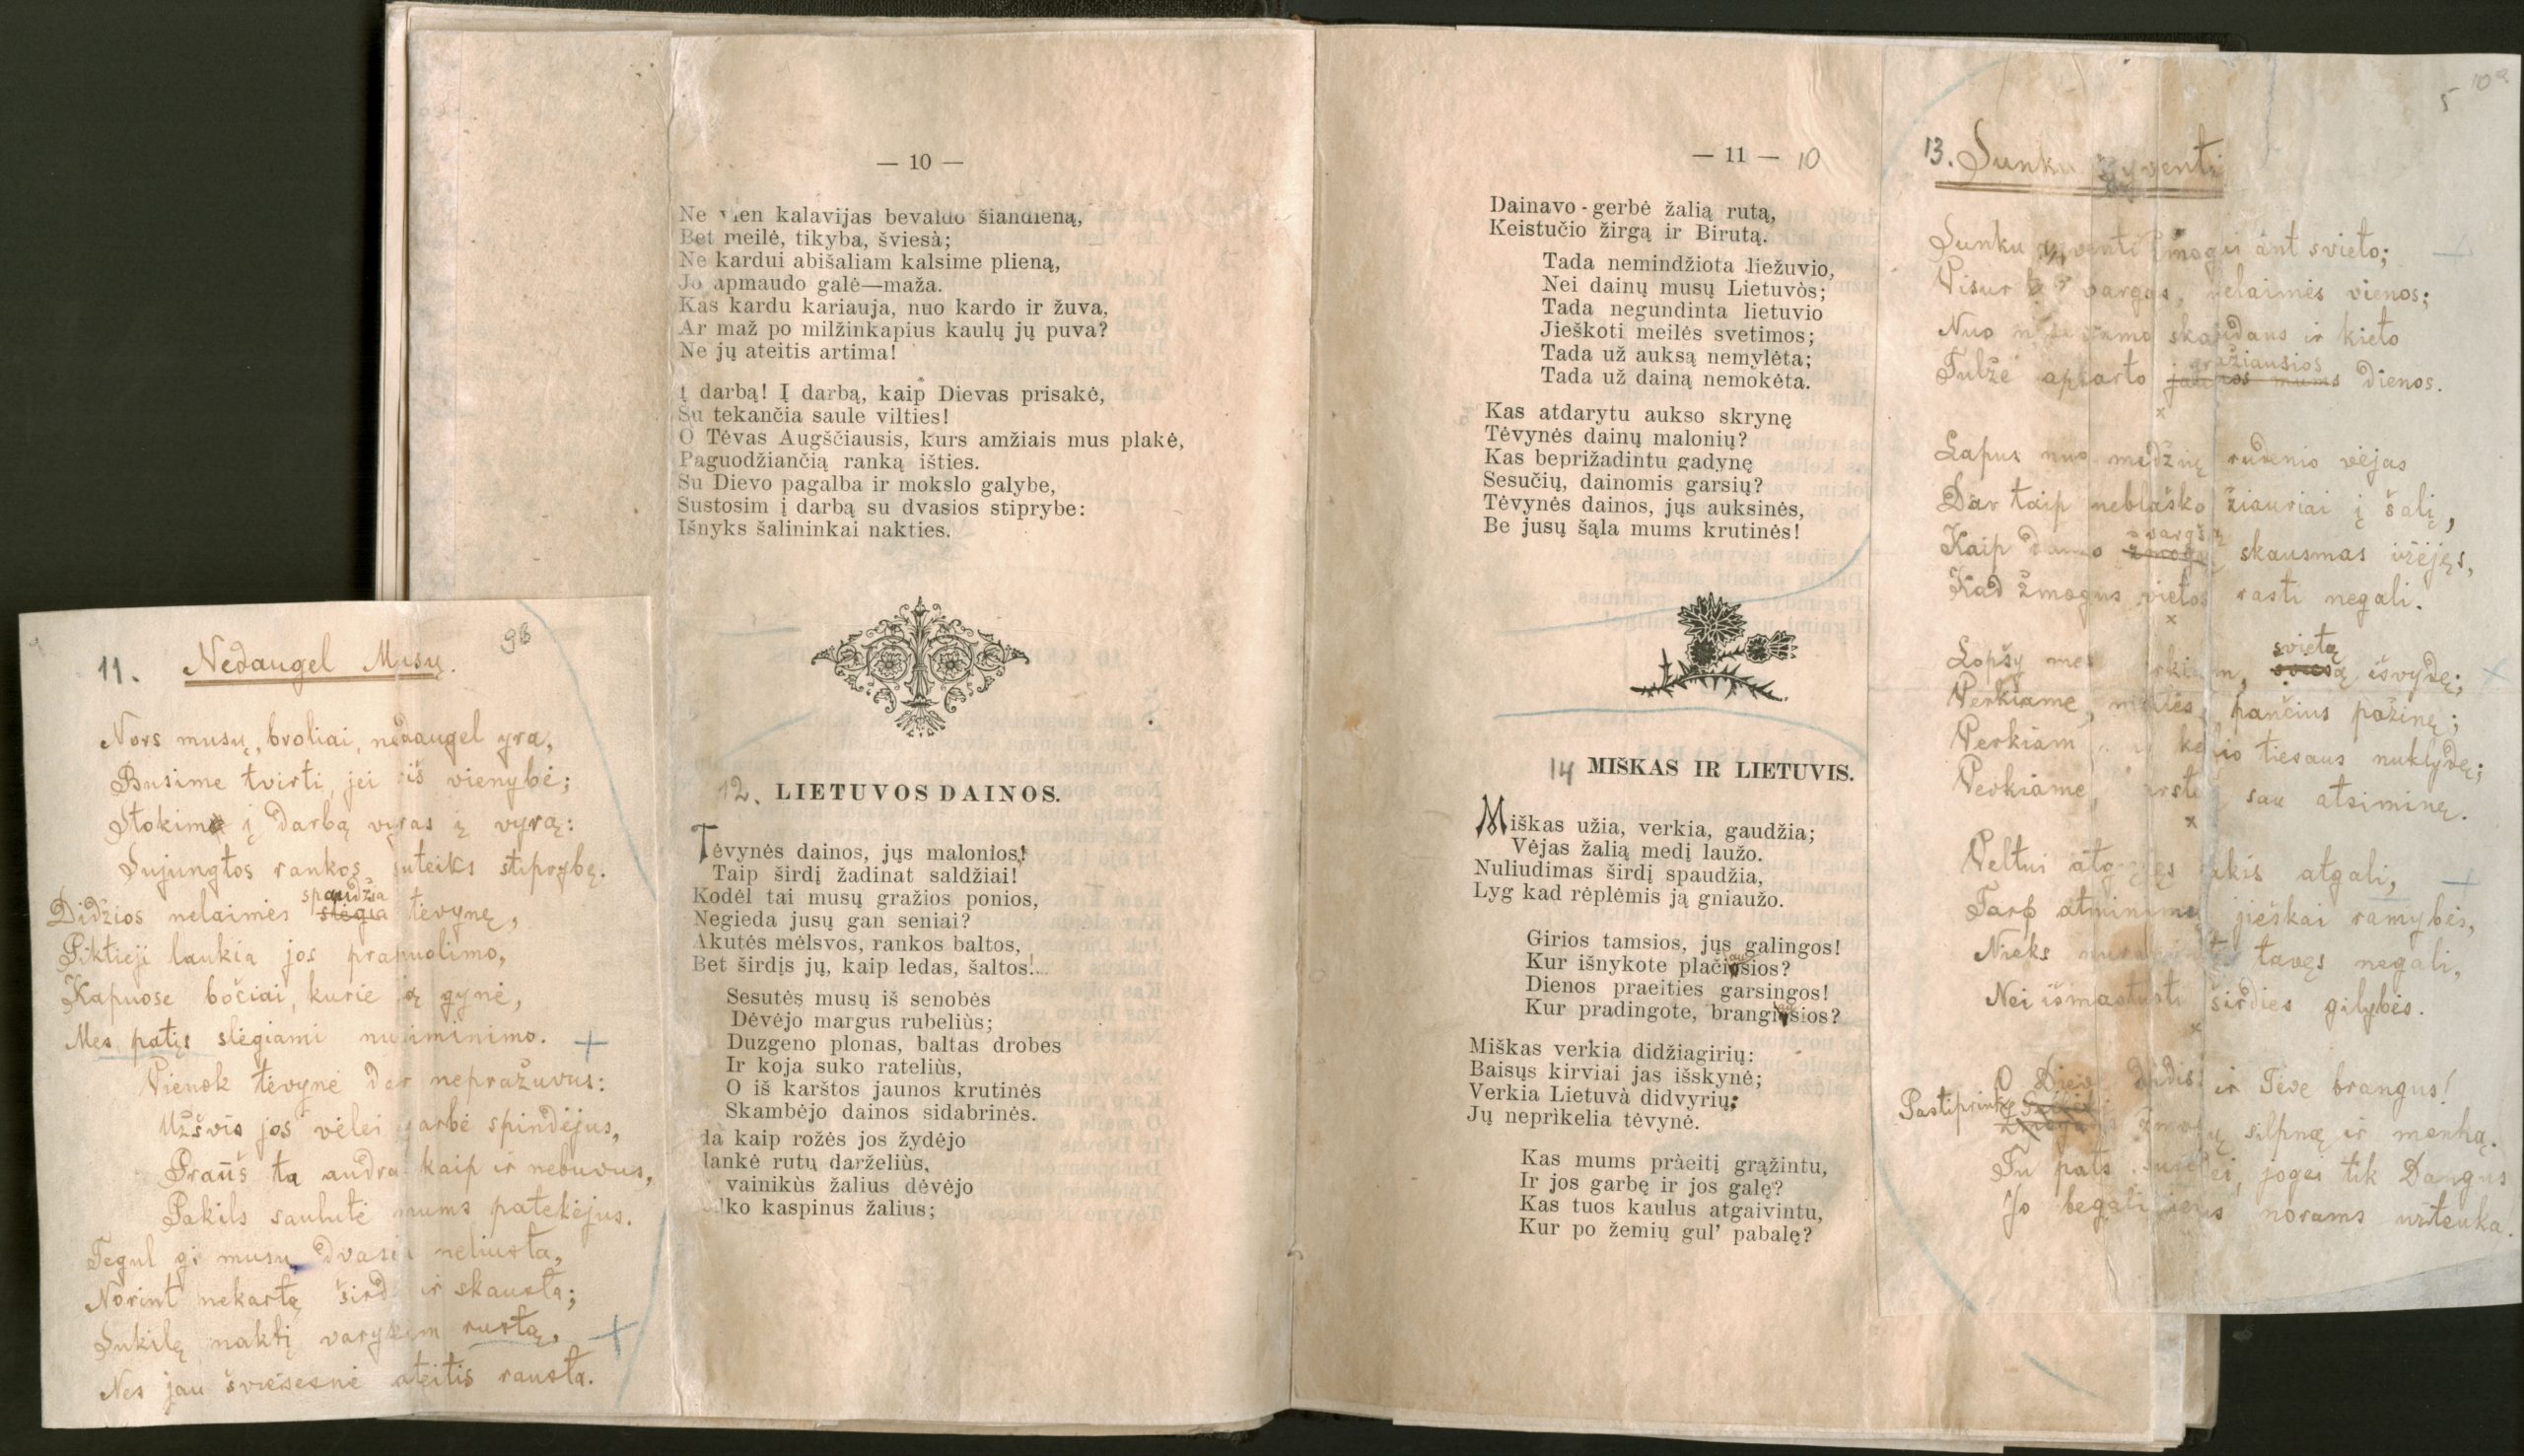 11. Nedaugel Musų. 9b
Nors musų, broliai, nedaugel yra,
Busime tvirti, jei bus vienybė;
Stokime į darbą vyras į vyrą:
Sujungtos rankos suteiks stiprybę.
spaudžia
Didžios nelaimės slėgia tėvynę,
Piktieji laukia jos prapuolimo,
Kapuose bočiai, kurie ją gynė,
Mes patįs slėgiami nusiminimo.
Vienok tėvynė dar nepražuvus:
Užšvis jos vėlei garbė spindėjus,
Prauš ta audra kaip ir nebuvus,
Pakils saulutė mums patekėjus.
Tegul gi musų dvasia neliusta,
Norint nekartą širdį ir skausta;
Sukilę naktį varykim rustą,
Nes jau šviesesnė ateitis rausta.
— 10 —
Ne vien kalavijas bevaldo šiandieną,
Bet meilė, tikyba, šviesà;
Ne kardui abišaliam kalsime plieną,
Jo apmaudo galė—maža.
Kas kardu kariauja, nuo kardo ir žuva,
Ar maž po milžinkapius kaulų jų puva?
Ne jų ateitis artima!
Į darbą! Į darbą, kaip Dievas prisakė,
Su tekančia saule vilties!
O Tėvas Augščiausis, kurs amžiais mus plakė,
Paguodžiančią ranką išties.
Su Dievo pagalba ir mokslo galybe,
Sustosim į darbą su dvasios stiprybe:
Išnyks šalininkai nakties.
12. LIETUVOS DAINOS.
Tėvynės dainos, jųs malonios!
Taip širdį žadinat saldžiai!
Kodėl tai musų gražios ponios,
Negieda jusų gan seniai?
Akutės mėlsvos, rankos baltos,
Bet širdįs jų, kaip ledas, šaltos!..
Sesutės musų iš senobės
Dėvėjo margus rubeliùs;
Duzgeno plonas, baltas drobes
Ir koja suko rateliùs,
O iš karštos jaunos krutinės
Skambėjo dainos sidabrinės.
da kaip rožės jos žydėjo
lankė rutų darželiùs,
vainikùs žalius dėvėjo
lko kaspinus žalius;
— 11 — 10
Dainavo - gerbė žalią rutą,
Keistučio žirgą ir Birutą.
Tada nemindžiota liežuvio,
Nei dainų musų Lietuvòs;
Tada negundinta lietuvio
Jieškoti meilės svetimos;
Tada už auksą nemylėta;
Tada už dainą nemokėta.
Kas atdarytu aukso skrynę
Tėvynės dainų malonių?
Kas beprižadintu gadynę
Sesučių, dainomis garsių?
Tėvynės dainos, jųs auksinės,
Be jusų šąla mums krutinės!
14 MIŠKAS IR LIETUVIS.
Miškas užia, verkia, gaudžia;
Vėjas žalią medį laužo.
Nuliudimas širdį spaudžia,
Lyg kad rėplėmis ją gniaužo.
Girios tamsios, jųs galingos!
Kur išnykote plačiausios?
Dienos praeities garsingos!
Kur pradingote, brangiausios?
Miškas verkia didžiagirių:
Baisųs kirviai jas išskynė;
Verkia Lietuvà didvyrių;
Jų neprikelia tėvynė.
Kas mums pràeitį grąžintu,
Ir jos garbę ir jos galę?
Kas tuos kaulus atgaivintu,
Kur po žemių gul' pabalę?
5 10a
13. Sunku gyventi
Sunku gyventi žmogui ant svieto;
Visur vargas, nelaimės vienos;
Nuo skaudaus ir kieto
gražiausios
Tulžė apkarto dienos.
Lapus nuo medžių rudenio vėjas
Dar taip neblaško žiauriai į šalį,
vargšą
Kaip daužo žmogų skausmas užėjęs,
Kad žmogus vietos rasti negali.
svietą
Lopšy mes verkiam, šviesą išvydę;
Verkiame, meilės pančius pažinę;
Verkiam kelio tiesaus nuklydę;
Verkiame, karstą sau atsiminę.
Veltui atgręžęs akis atgali,
Tarp atminimų jieškai ramybės,
Nieks nuraminti tavęs negali,
Nei išmatuoti širdies gilybės.
O Dieve didis ir Tėve brangus!
Pastiprink žmogų silpną ir menką.
Tu pats jogei tik Dangus
Jo begaliniems norams užtenka.